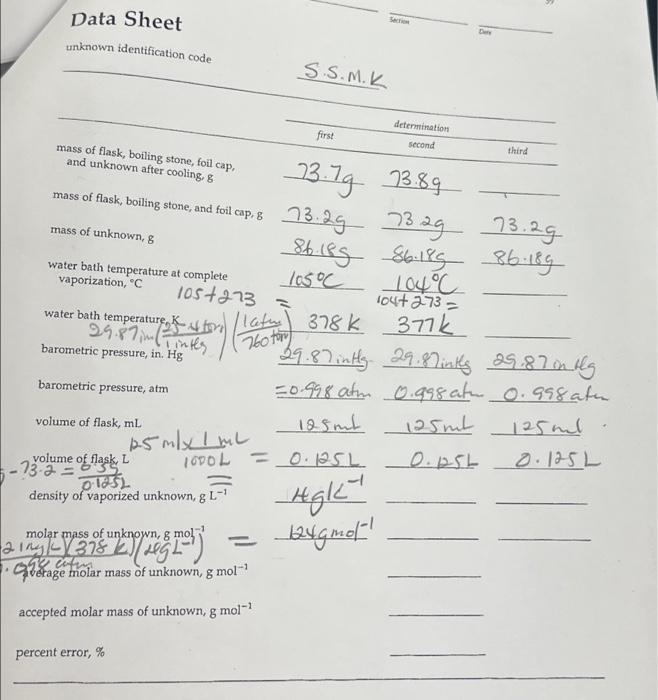 Data Sheet
Section
Date
unknown identification code
S.S.M.K
determination
first second third
mass of flask, boiling stone, foil cap,
and unknown after cooling, g 73.7g 73.8g
mass of flask, boiling stone, and foil cap, g 73.2g 73.2g 73.2g
mass of unknown, g 86.18g 86.18g 86.18g
water bath temperature at complete
vaporization, °C 105°C 104°C
105+273 = 104+273=
water bath temperature, K 378K 377K
29.87in (25.4 torr / 1 inHg) (1atm / 760 torr)
barometric pressure, in. Hg 29.87inHg 29.87inHg 29.87inHg
barometric pressure, atm =0.998 atm 0.998atm 0.998atm
volume of flask, mL 125mL 125mL 125mL
125 ml x 1 mL
1000L
volume of flask, L = 0.125L 0.125L 0.125L
-73.2 =
0.125L
density of vaporized unknown, g L⁻¹ 4gL⁻¹
molar mass of unknown, g mol⁻¹ = 124gmol⁻¹
(378 K)
average molar mass of unknown, g mol⁻¹
accepted molar mass of unknown, g mol⁻¹
percent error, %